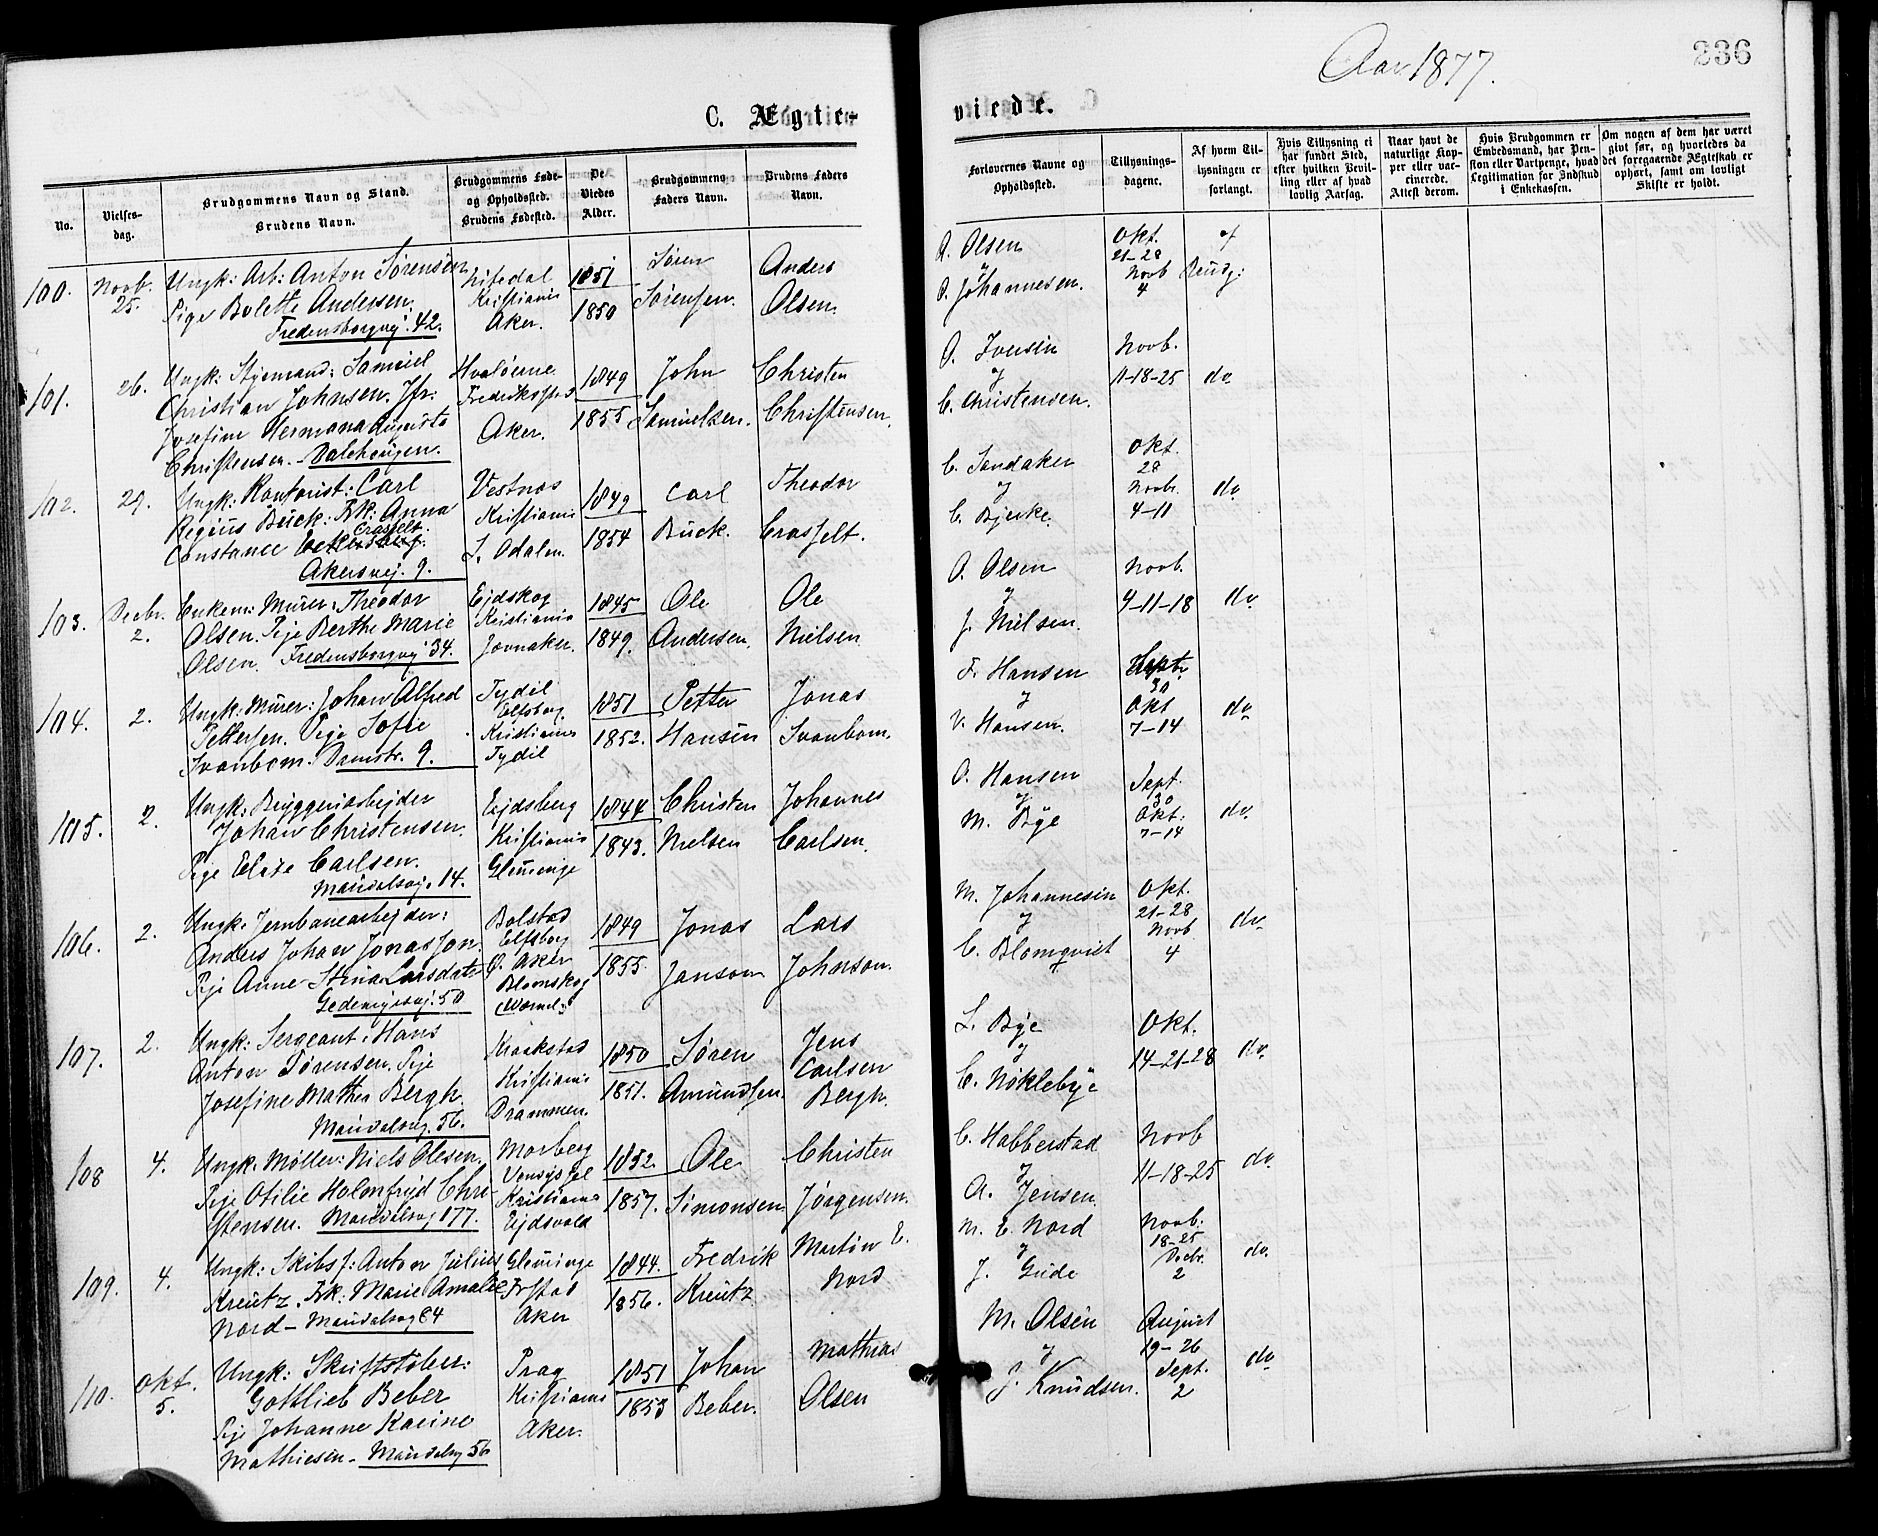 Aar 1877.
236
C. Ægte-
viede.
No.
Vielses-
dag.
Brudgommens Navn og Stand.
Brudens Navn.
Brudgommens Føde-
og Opholdssted.
Brudens Fødested.
De
Viedes
Alder.
Brudgommens
Faders Navn.
Brudens Faders
Navn.
Forlovernes Navne og
Opholdssted.
Tillysnings-
dagene.
Af hvem Til-
lysningen er
forlangt.
Hvis Tillysning ei
har fundet Sted,
efter hvilken Bevil-
ling eller af hvad
lovlig Aarsag.
Naar havt de
naturlige Kop-
per eller vac-
cinerede.
Attest derom.
Hvis Brudgommen er
Embedsmand, har Pen-
sion eller Vartpenge, hvad
Legitimation for Indskud
i Enkekassen.
Om nogen af dem har været
givt før, og hvorledes da
det foregaaende Ægteskab er
ophørt, samt om lovligt
Skifte er holdt.
100.
Novb.
25.
Ungk: Arb: Anton Sørensen
Pige Bolette Andersen.
Fredensborgvej. 42.
Nitedal
Kristiania
Aker.
1851
1850
Søren
Sørensen.
Anders
Olsen.
O. Olsen
&
O. Johannesen.
Okt.
21-28
Novb
4
af
Brudg:
101.
26.
Ungk: Styrmand: Samuel
Christian Johnsen. Jfr:
Josefine Hermana Augusta
Christensen. - Dalehaugen.
Hvaløerne
Frederikssted
Aker.
1849
1855
John
Samuelsen.
Christen
Christensen.
O. Iversen
&
C. Christensen.
Novb.
11-18-25
do
102.
29.
Ungk: Kontorist: Carl
Regius Buck: Frk: Anna
Crasselt.
Constance
Akersvej. 9.
Vestnes
Kristiania
S. Odalen.
1849
1854
Carl
Buck.
Theodor
Crasselt.
C. Sandaker
&
C. Bjerke.
Okt.
28
Novbr.
4-11
do
103.
Decbr.
2.
Enkem: Murer: Theodor
Olsen. Pige Berthe Marie
Olsen. Fredensborgvej 34.
Ejdskog
Kristiania
Jevnaker.
1845
1849.
Ole
Andersen.
Ole
Nielsen.
O. Olsen
&
J. Nielsen.
Novb.
4-11-18
do
104.
2.
Ungk. Murer: Johan Alfred
Pettersen. Pige Sofie
Svanbom. Damstr. 9.
Tydil
Elfsborg
Kristiania
Tydil
1851
1852.
Petter
Hansen
Jonas
Svanbom.
F. Hansen
&
V. Hansen.
Septr.
30
Okt
7-14
do
105.
2.
Ungk: Bryggeriarbejder
Johan Christensen.
Pige Elise Carlsen.
Maridalsvej. 14.
Ejdsberg
Kristiania
Glemminge
1844
1843.
Christen
Nielsen
Johannes
Carlsen.
O. Hansen
&
M. Bye
Sept.
30
Okt:
7-14
do
106.
2.
Ungk. Jernbanearbejder:
Anders Johan Jonasson.
Pige Anne Stina Larsdatr
Geitemyrsvej. 50
Bolstad
Elfsborg
Ø. Aker
Blomskog
Wermel.
1849
1855.
Jonas
Janson
Lars
Johnson.
M. Johannesen
&
C. Blomqvist
Okt.
21-28
Novb
4
do
107.
2.
Ungk: Sergeant: Hans
Anton Sørensen. Pige
Josefine Mathea Bergh.
Maridalsvej. 56.
Kraakstad
Kristiania
Drammen.
1850
1851.
Søren
Amundsen.
Jens
Carlsen
Bergh.
L. Bye
&
C. Nøklebye
Okt.
14-21-28
do
108
4.
Ungk. Møller: Niels Olesen.
Pige Otilie Holmfryd Chri-
stensen. Maridalsvej 177.
Morberg
Vensyssel
Kristiania
Ejdsvold
1852.
1857.
Ole
Simonsen
Christen
Jørgensen.
C. Habberstad
&
A. Jensen.
Novb
11-18-25
do
109.
4.
Ungk: Skibsf: Anton Julius
Kreutz. Frk: Marie Amalie
Nord - Maridalsvej 84
Glemminge
Frstad
Aker
1844.
1856.
Fredrik
Kreutz
Martin E.
Nord
M. E. Nord
&
J. Gude
Novb.
18-25
Decbr.
2
do
110.
Okt.
5.
Ungk: Skriftstøber:
Gottlieb Beber
Pige Johanne Karine
Mathiesen - Maridalsvej 56
Prag
Kristiania
Aker.
1851
1853
Johan
Beber.
Mathias
Olsen
M. Olsen
&
J. Knudsen.
August
19-26
Sept.
2
do